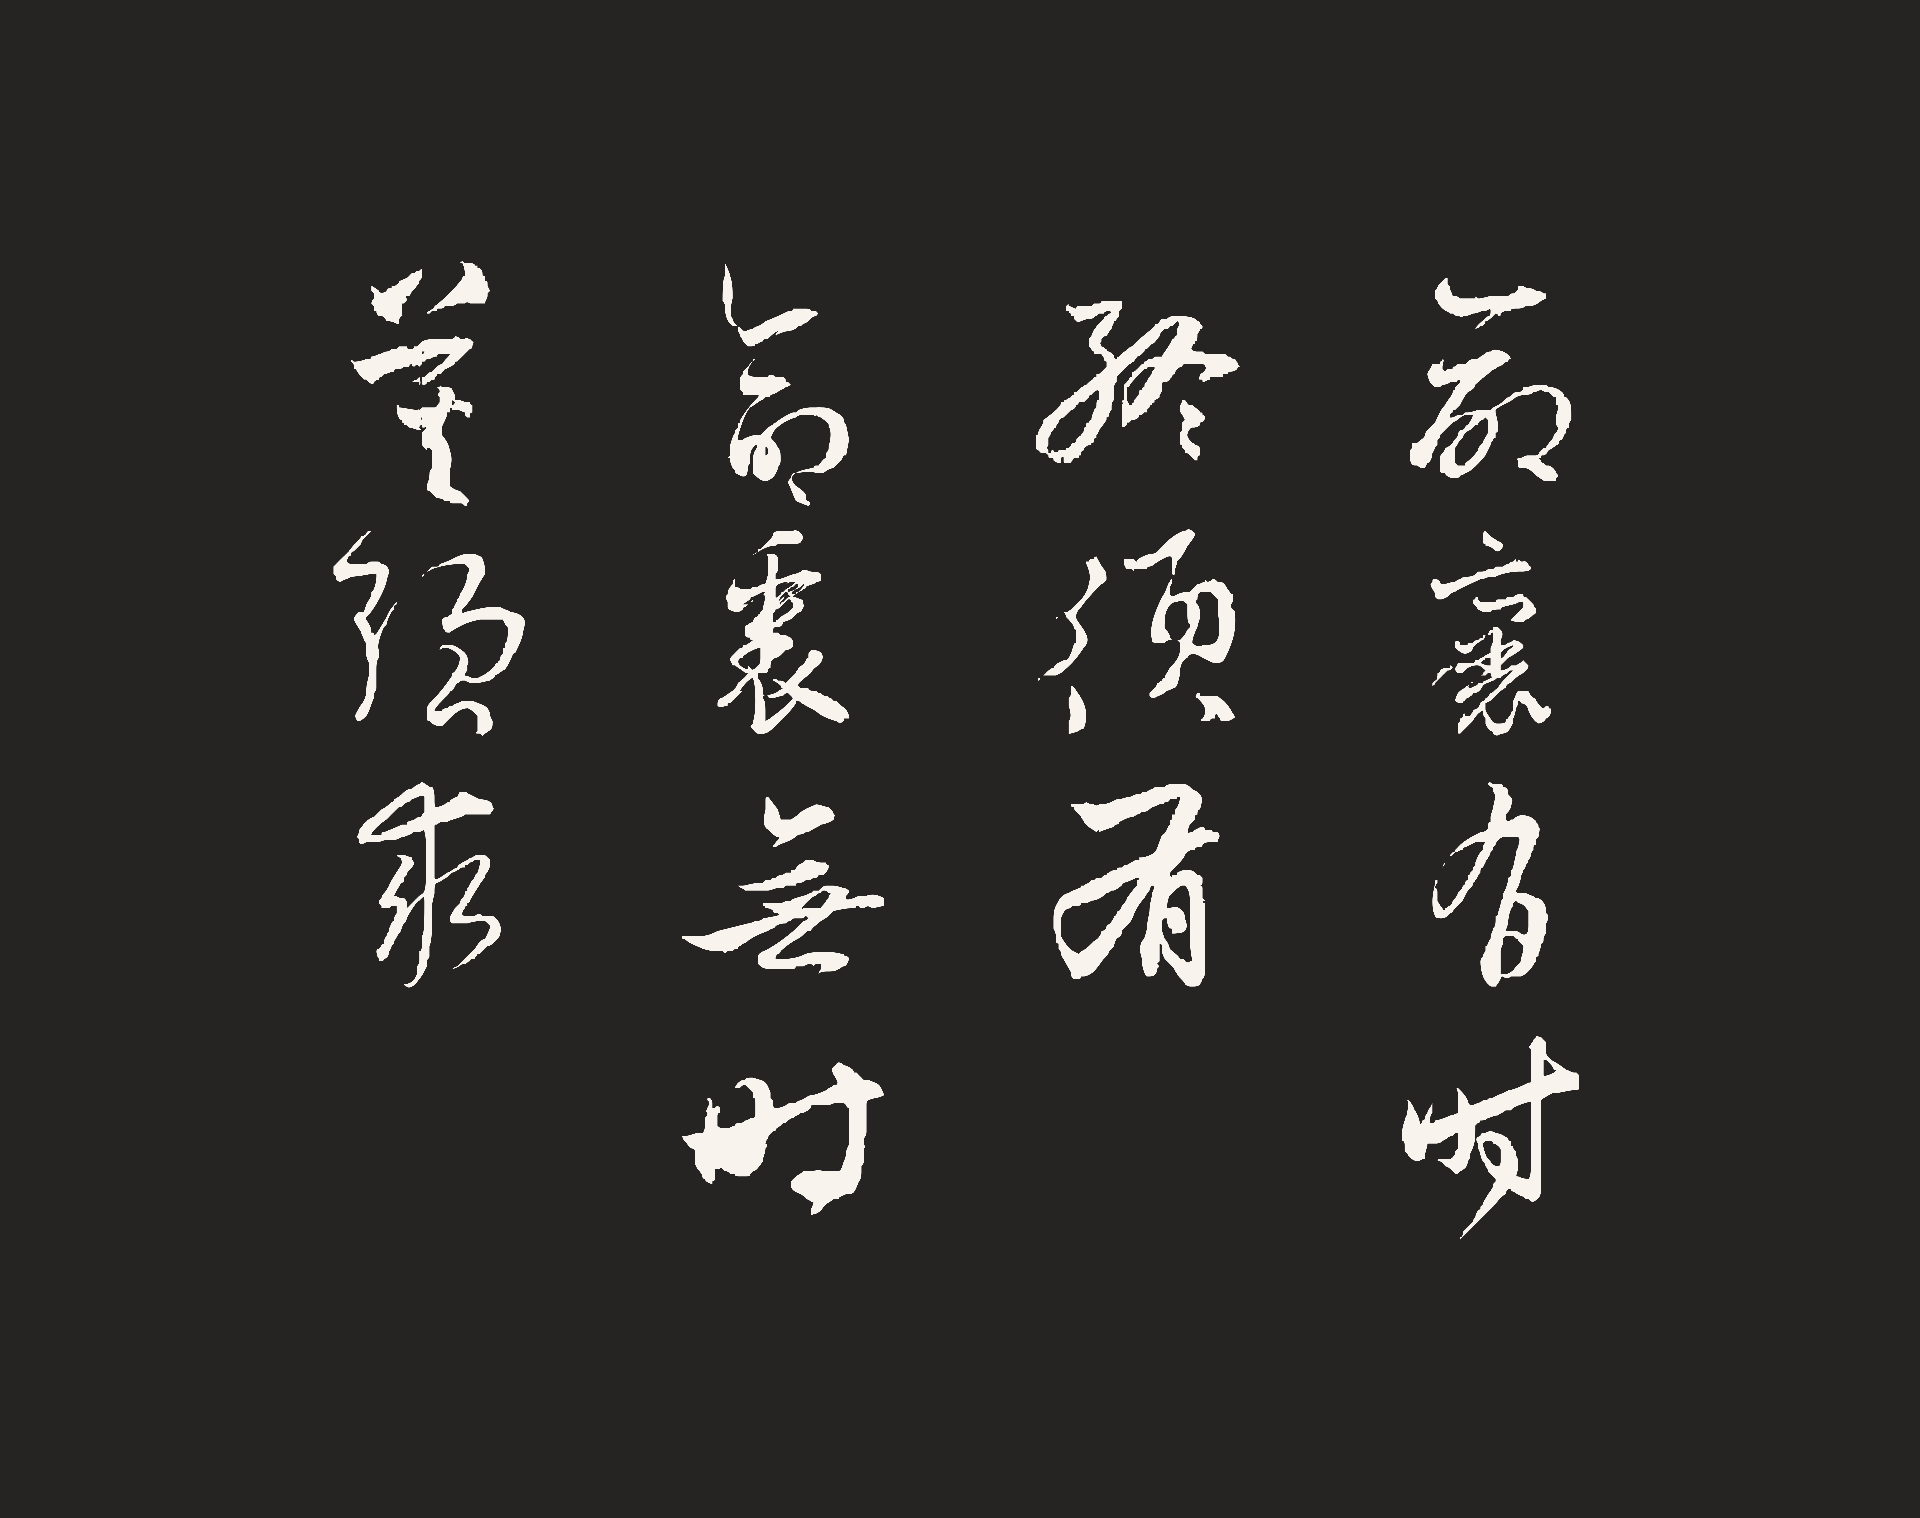 命裏有時
終須有
命裏無時
莫強求